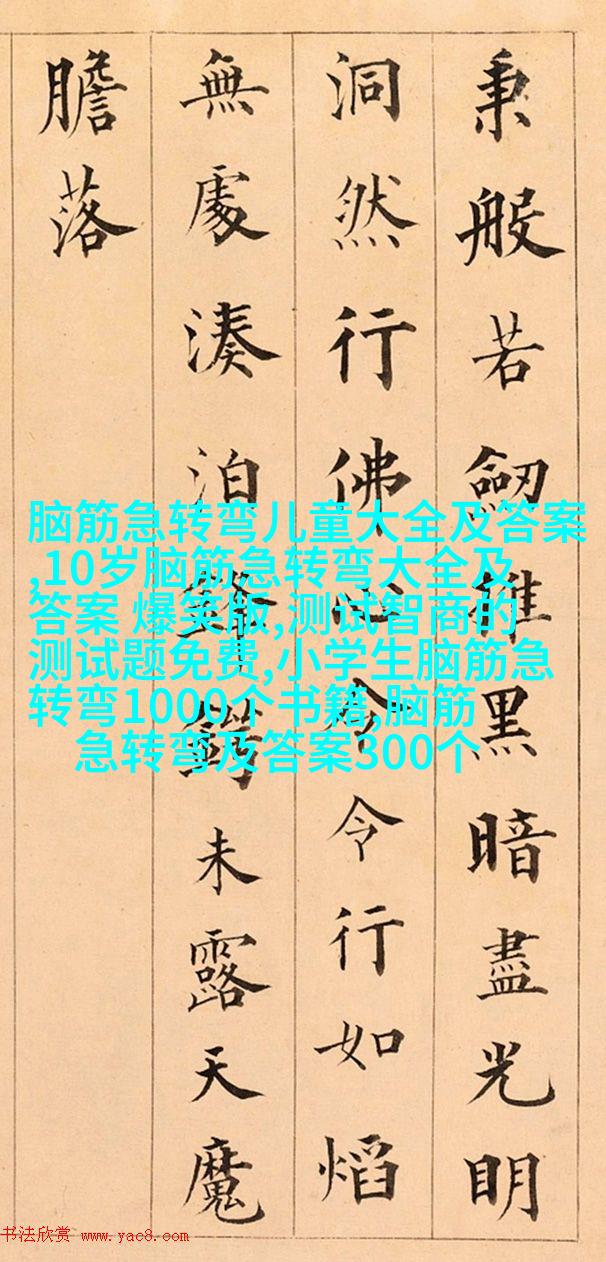 秉般若劒摧黑暗盡光明
洞然行佛心令令行如熖
無處湊泊鋒鍔未露天魔
膽落
脑筋急转弯儿童大全及答案
,10岁脑筋急转弯大全及
答案 爆笑版,测试智商的
测试题免费,小学生脑筋急
转弯1000个书籍,脑筋
急转弯及答案300个
书法欣赏 www.yac8.com